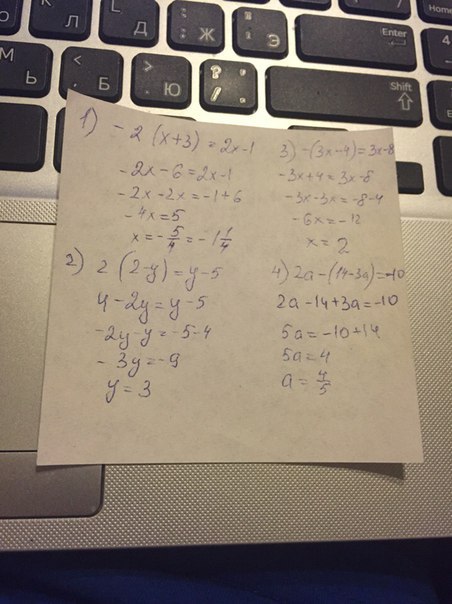 Л
Д
Ж
Э
Enter
Home
4
Ь
< Б
> Ю
?
/
Shift
1) -2 (x+3) = 2x-1
-2x-6=2x-1
-2x-2x=-1+6
-4x=5
x=-5/4=-1 1/4
2) 2 (2-y)=y-5
4-2y=y-5
-2y-y=-5-4
-3y=-9
y=3
3) -(3x-4)=3x-8
-3x+4=3x-8
-3x-3x=-8-4
-6x=-12
x=2
4) 2a-(14-3a)=-10
2a-14+3a=-10
5a=-10+14
5a=4
a=4/5